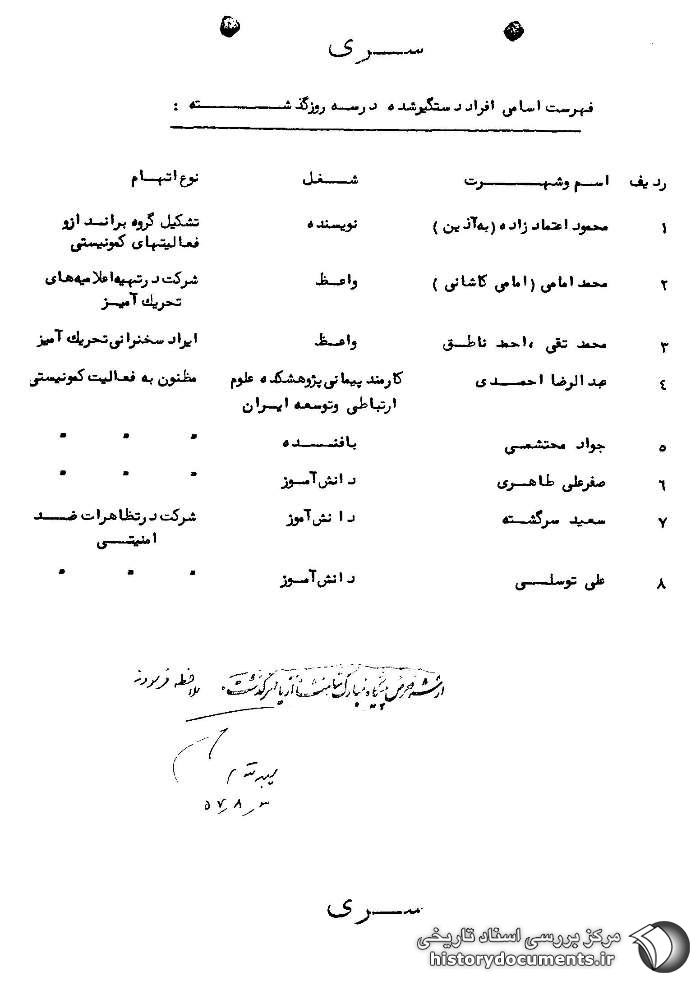 سری
فهرست اسامی افراد دستگیرشده در سه روز گذشته :
ردیف اسم وشهرت شغل نوع اتهام
۱ محمود اعتمادزاده (به‌آذین) نویسنده تشکیل گروه براندازو
فعالیتهای کمونیستی
۲ محمد امامی (امامی کاشانی) واعظ شرکت در تهیه اعلامیه‌های
تحریک آمیز
۳ محمد تقی ،احمد ناطق واعظ ایراد سخنرانی تحریک آمیز
٤ عبدالرضا احمدی کارمند پیمانی پژوهشکده علوم مظنون به فعالیت کمونیستی
ارتباطی وتوسعه ایران
۵ جواد محتشمی بافنده " " "
٦ صفرعلی طاهری دانش‌آموز " " "
۷ سعید سرگشته دانش‌آموز شرکت در تظاهرات ضد
امنیتی
۸ علی توسلی دانش‌آموز " " "
از شرف عرض پیشگاه مبارک شاهنشاه آریامهر گذشت. ملاحظه فرمودند
۵۷٫۸٫۳
سری
مرکز بررسی اسناد تاریخی
historydocuments.ir